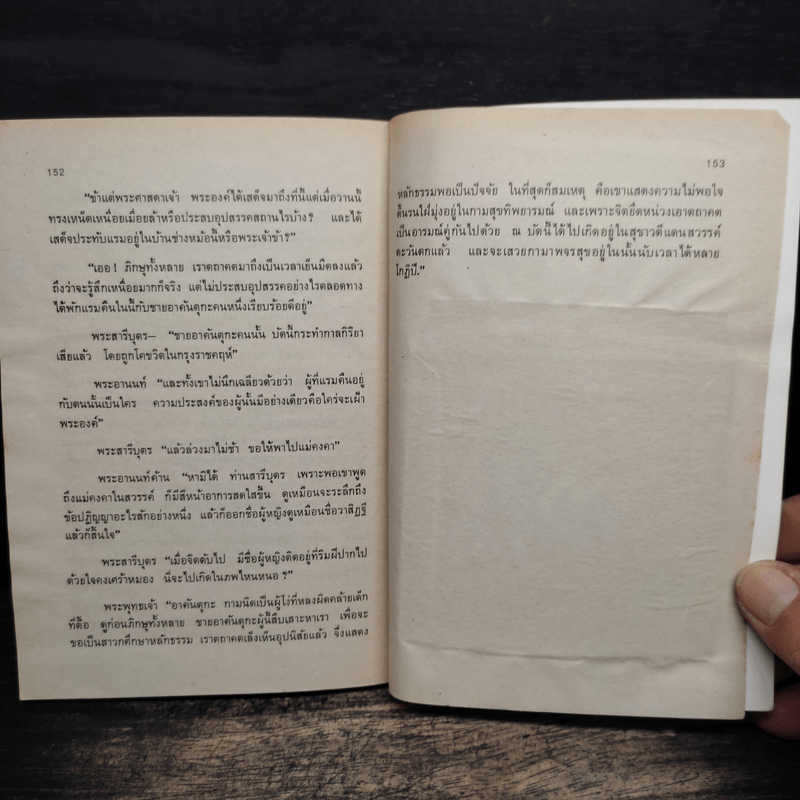 152
“ข้าแต่พระศาสดาเจ้า พระองค์ได้เสด็จมาถึงที่นี้แต่เมื่อวานนี้
ทรงเหน็ดเหนื่อยเมื่อยล้าหรือประสบอุปสรรคสถานไรบ้าง? และได้
เสด็จประทับแรมอยู่ในบ้านช่างหม้อนี้หรือพระเจ้าข้า?”
“เออ! ภิกษุทั้งหลาย เราตถาคตมาถึงเป็นเวลาเย็นมืดลงแล้ว
ถึงว่าจะรู้สึกเหนื่อยมากก็จริง แต่ไม่ประสบอุปสรรคอย่างไรตลอดทาง
ได้พักแรมคืนในนี้กับชายอาคันตุกะคนหนึ่งเรียบร้อยดีอยู่”
พระสารีบุตร– “ชายอาคันตุกะคนนั้น บัดนี้กระทำกาลกิริยา
เสียแล้ว โดยถูกโคขวิดในกรุงราชคฤห์”
พระอานนท์ “และทั้งเขาไม่นึกเฉลียวด้วยว่า ผู้ที่แรมคืนอยู่
กับตนนั้นเป็นใคร ความประสงค์ของผู้นั้นมีอย่างเดียวคือใคร่จะเฝ้า
พระองค์”
พระสารีบุตร “แล้วล่วงมาไม่ช้า ขอให้พาไปแม่คงคา”
พระอานนท์ค้าน “หามิได้ ท่านสารีบุตร เพราะพอเขาพูด
ถึงแม่คงคาในสวรรค์ ก็มีสีหน้าอาการสดใสขึ้น ดูเหมือนจะระลึกถึง
ข้อปฏิญญาอะไรสักอย่างหนึ่ง แล้วก็ออกชื่อผู้หญิงดูเหมือนชื่อวาสิฏฐี
แล้วก็สิ้นใจ”
พระสารีบุตร “เมื่อจิตดับไป มีชื่อผู้หญิงติดอยู่ที่ริมฝีปากไป
ด้วยใจคงเศร้าหมอง นี่จะไปเกิดในภพไหนหนอ?”
พระพุทธเจ้า “อาคันตุกะ กามนิตเป็นผู้โง่ที่หลงผิดคล้ายเด็ก
ที่ดื้อ ดูก่อนภิกษุทั้งหลาย ชายอาคันตุกะผู้นี้สืบเสาะหาเรา เพื่อจะ
ขอเป็นสาวกศึกษาหลักธรรม เราตถาคตเล็งเห็นอุปนิสัยแล้ว จึงแสดง
153
หลักธรรมพอเป็นปัจจัย ในที่สุดก็สมเหตุ คือเขาแสดงความไม่พอใจ
ดิ้นรนใฝ่มุ่งอยู่ในกามสุขทิพยารมณ์ และเพราะจิตยึดหน่วงเอาตถาคต
เป็นอารมณ์คู่กันไปด้วย ณ บัดนี้ได้ไปเกิดอยู่ในสุขาวดีแดนสวรรค์
ตะวันตกแล้ว และจะเสวยกามาพจรสุขอยู่ในนั้นนับเวลาได้หลาย
โกฏิปี.”